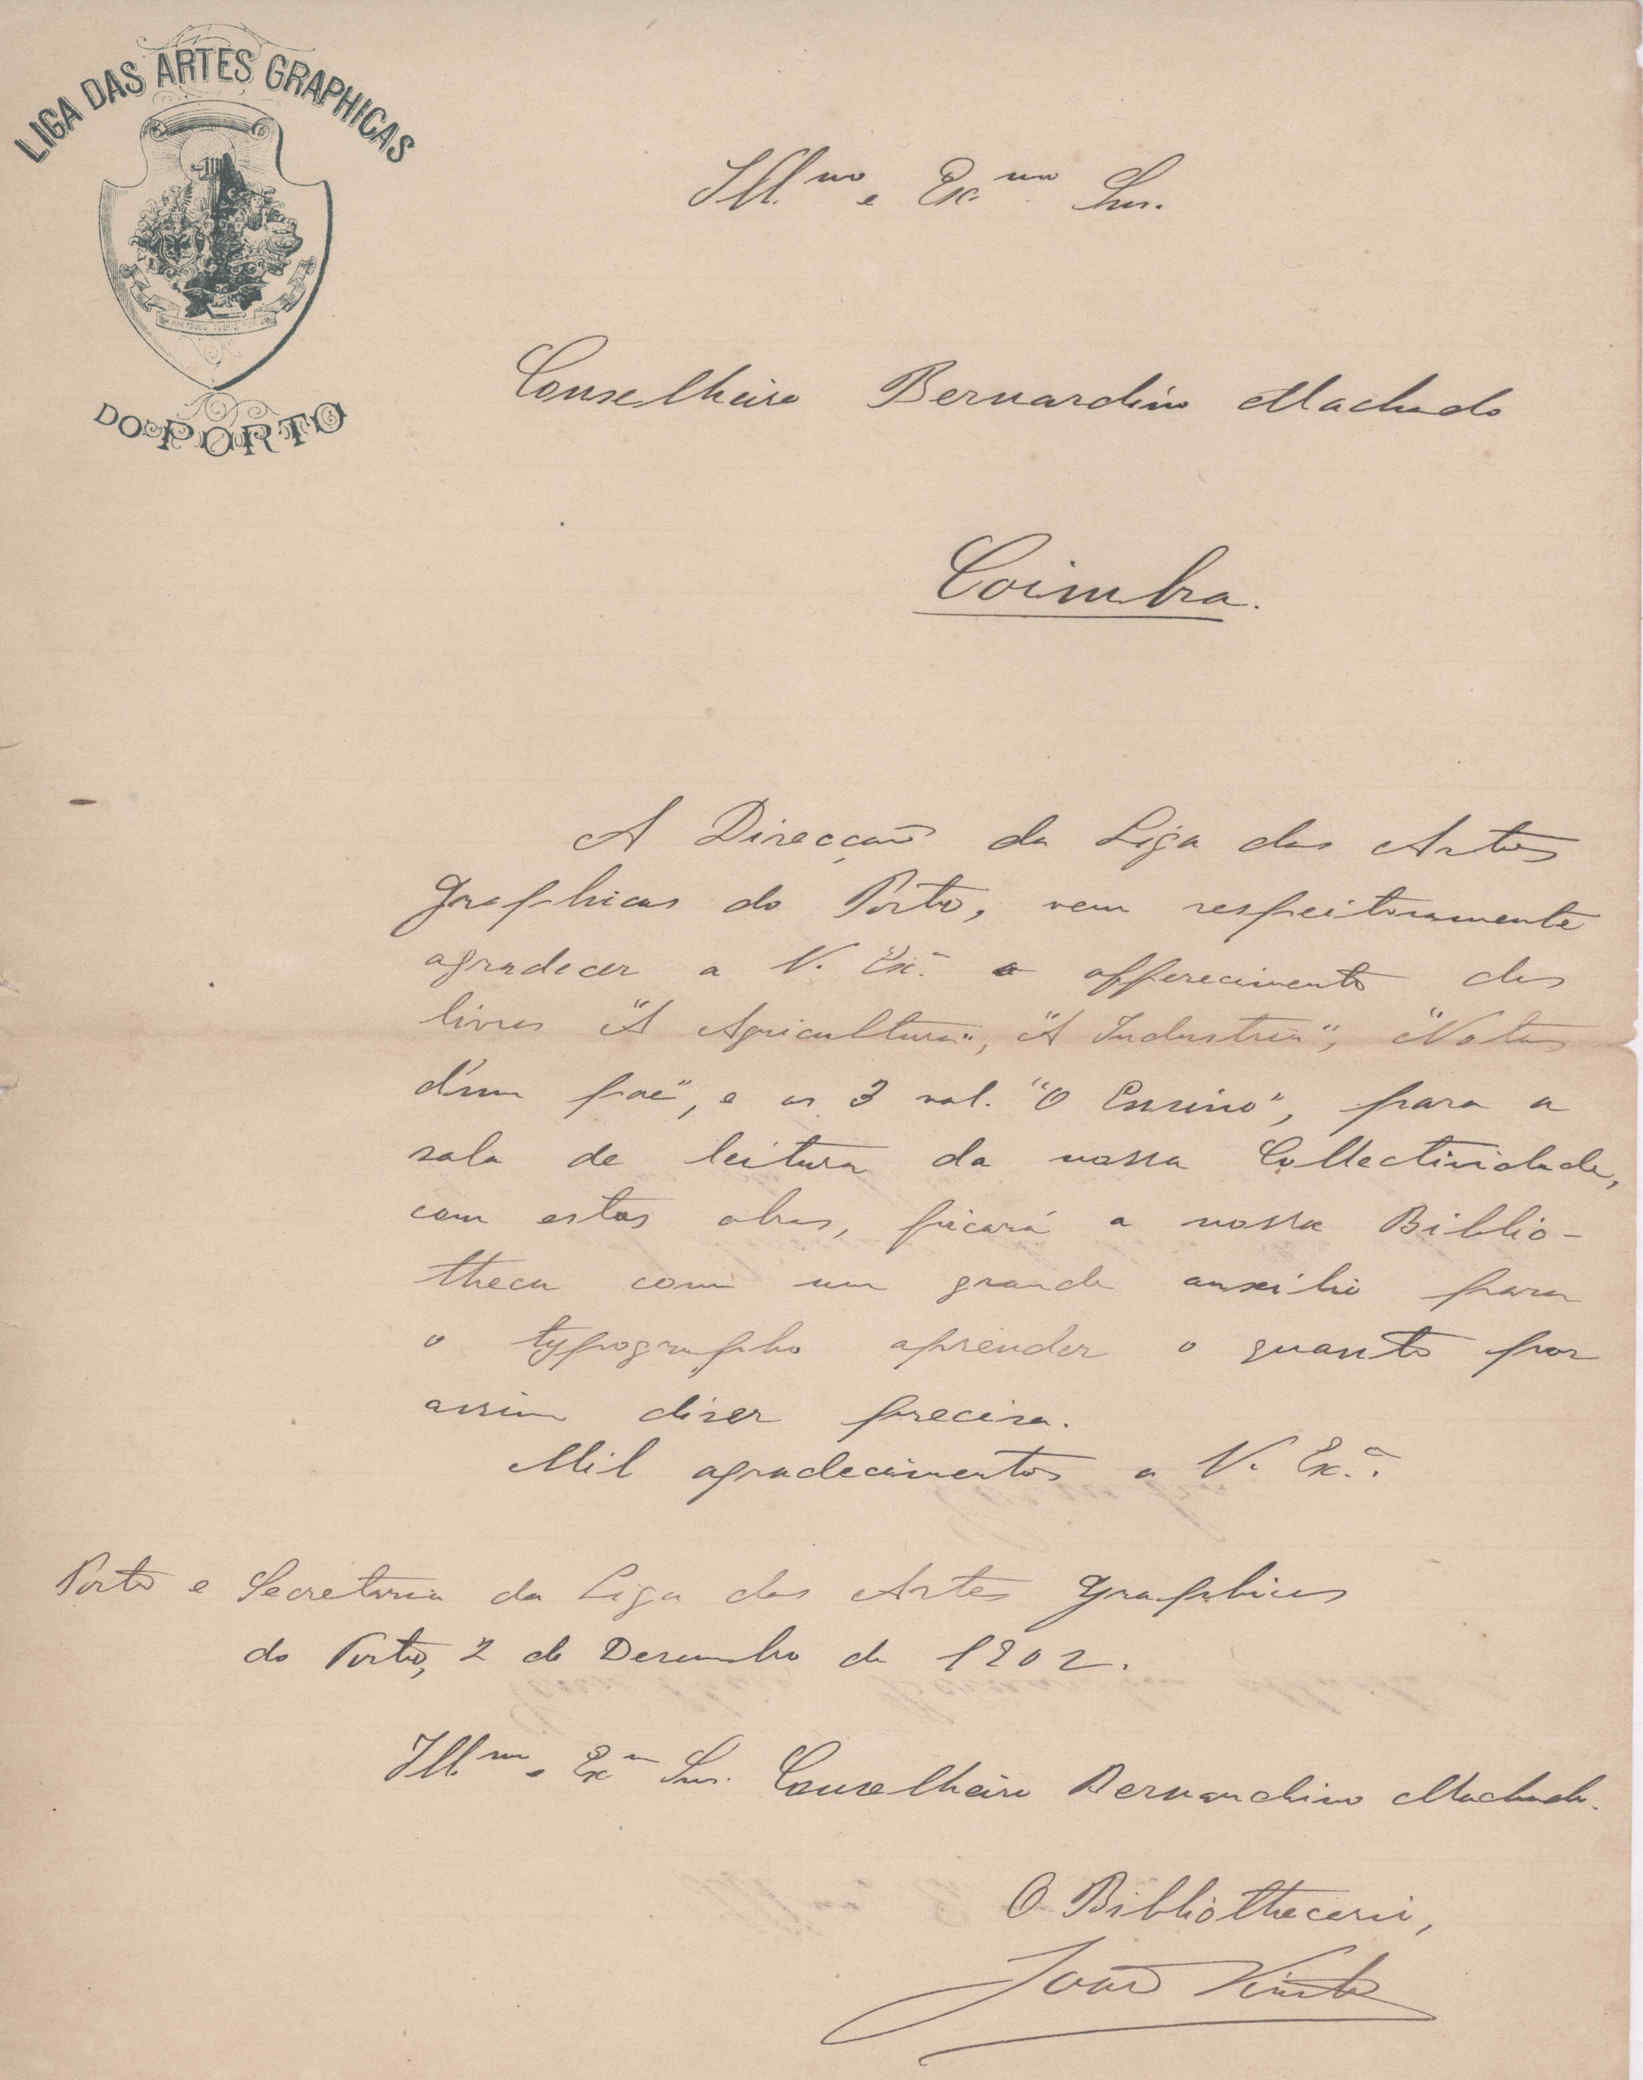 LIGA DAS ARTES GRAPHICAS
DO PORTO
Ill.mo e Ex.mo Snr.
Conselheiro Bernardino Machado
Coimbra.
A Direcção da Liga das Artes
Graphicas do Porto, vem respeitosamente
agradecer a V. Ex.ª o offerecimento dos
livros "A Agricultura", "A Industria", "Notas
d'um pae", e os 3 vol. "O Ensino", para a
sala de leitura da nossa Collectividade,
com estas obras, ficará a nossa Biblio-
theca com um grande auxilio para
o typographo aprender o quanto por
assim diser precisa.
Mil agradecimentos a V. Ex.ª.
Porto e Secretaria da Liga das Artes Graphicas
do Porto, 2 de Desembro de 1902.
Ill.mo e Ex.mo Snr. Conselheiro Bernardino Machado.
O Bibliothecario,
João